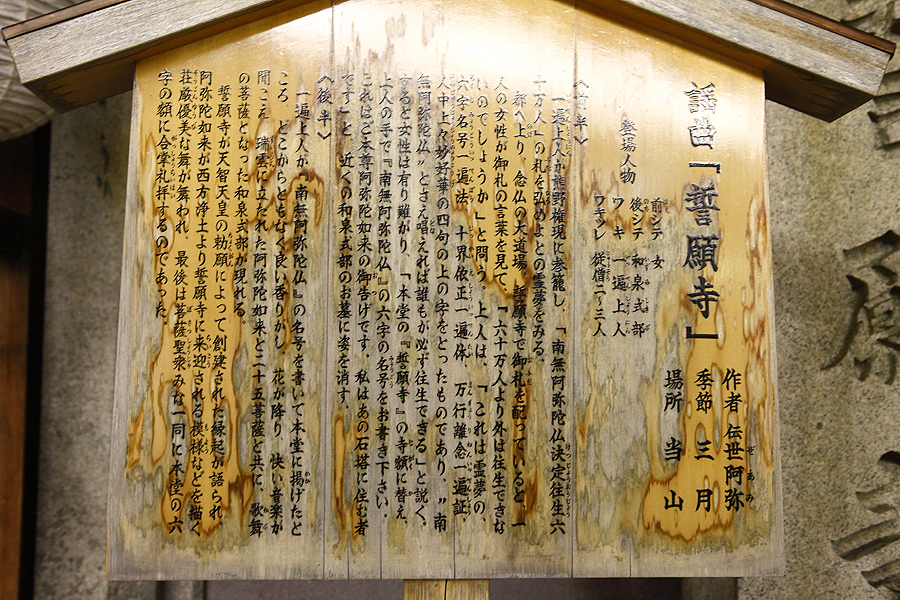 謡曲『誓願寺』
作者 伝世阿弥
季節 三月
場所 当山
登場人物
前シテ 女
後シテ 和泉式部
ワキ 一遍上人
ワキツレ 従僧二〜三人
〈前半〉
一遍上人が熊野権現に参籠し、「南無阿弥陀仏 決定往生六
十万人」の札を弘めよとの霊夢をみる。
都へ上り、念仏の大道場、誓願寺で御札を配っていると、一
人の女性が御札の言葉を見て、「六十万人より外は往生できな
いのでしょうか」と問う。上人は、「これは霊夢の、
六字名号一遍法、十界依正一遍体、万行離念一遍証、
人中上々妙好華の四句の上の字をとったものであり、〝南
無阿弥陀仏〟とさえ唱えれば誰もが必ず往生できる」と説く。
すると女性は有り難がり、「本堂の『誓願寺』の寺額に替え、
上人の手で『南無阿弥陀仏』の六字の名号をお書き下さい。
これはご本尊阿弥陀如来の御告げです。私はあの石塔に住む者
です」と、近くの和泉式部のお墓に姿を消す。
〈後半〉
一遍上人が『南無阿弥陀仏』の名号を書いて本堂に掲げたと
ころ、どこからともなく良い香りがし、花が降り、快い音楽が
聞こえ、瑞雲に立たれた阿弥陀如来と二十五菩薩と共に、歌舞
の菩薩となった和泉式部が現れる。
誓願寺が天智天皇の勅願によって創建された縁起が語られ、
阿弥陀如来が西方浄土より誓願寺に来迎される模様などを描く
荘厳優美な舞が舞われ、最後は菩薩聖衆みな一同に本堂の六
字の額に合掌礼拝するのであった。